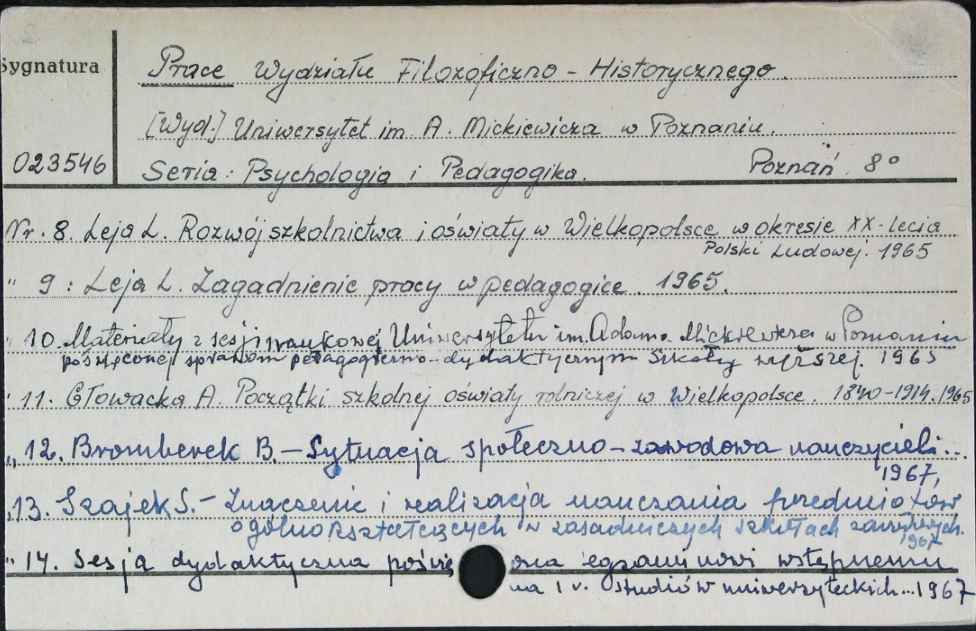 Sygnatura
Prace Wydziału Filozoficzno - Historycznego.
[Wyd.] Uniwersytet im. A. Mickiewicza w Poznaniu.
023546
Seria: Psychologia i Pedagogika. Poznań. 8°
Nr. 8. Leja L. Rozwój szkolnictwa i oświaty w Wielkopolsce w okresie XX-lecia
Polski Ludowej. 1965
" 9: Leja L. Zagadnienie pracy w pedagogice. 1965.
" 10. Materiały z sesji naukowej Uniwersytetu im. Adama Mickiewicza w Poznaniu
poświęconej sprawom pedagogiczno-dydaktycznym szkoły wyższej. 1965
" 11. Głowacka A. Początki szkolnej oświaty rolniczej w Wielkopolsce. 1840-1914. 1965
" 12. Bromberek B. - Sytuacja społeczno-zawodowa nauczycieli...
1967,
" 13. Szajek S. - Znaczenie i realizacja nauczania przedmiotów
ogólnokształcących w zasadniczych szkołach zawodowych.
1967
" 14. Sesja dydaktyczna poświę ona egzaminowi wstępnemu
na I r. studiów uniwersyteckich...1967